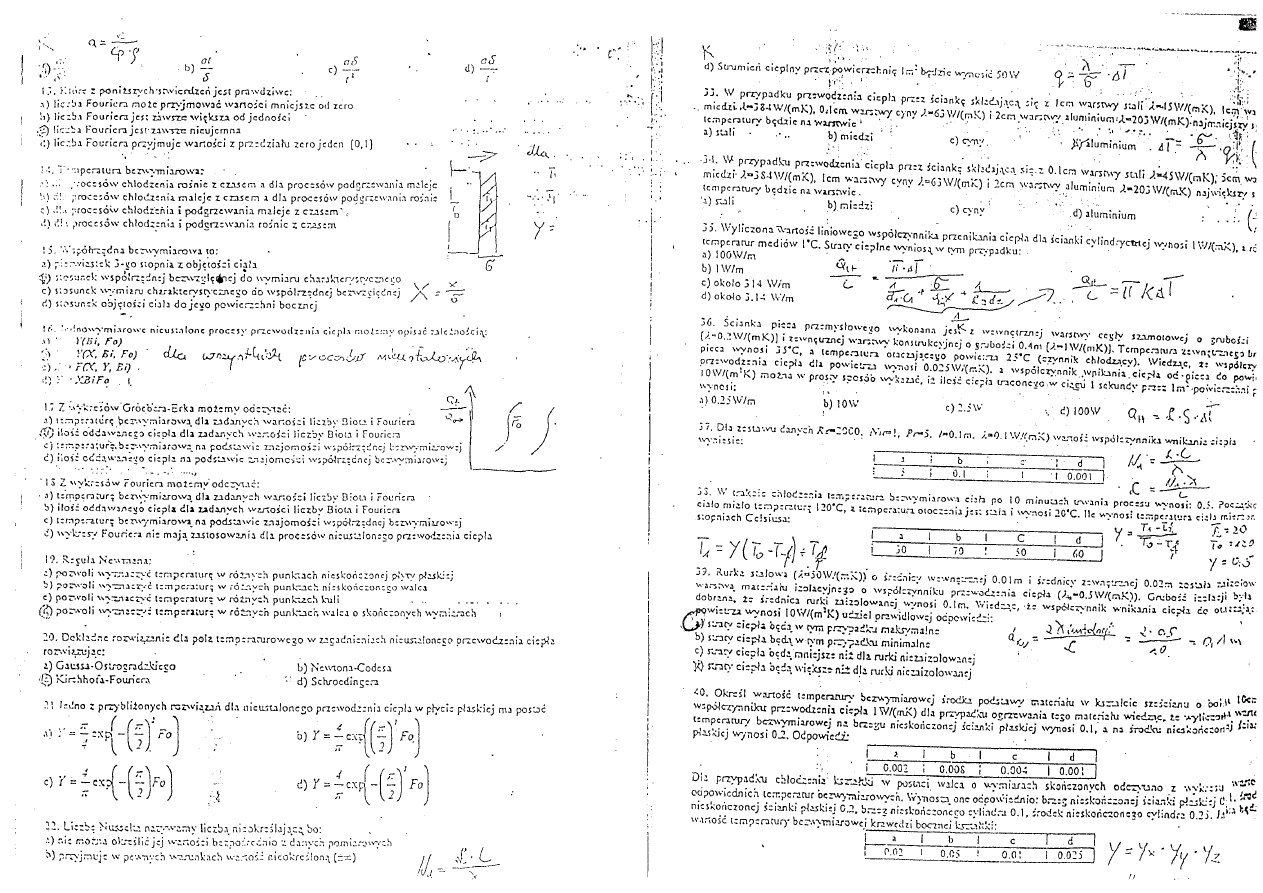 a = / Cp·ρ
b) at/δ c) aδ/t² d) aδ/t
13. Które z poniższych stwierdzeń jest prawdziwe:
a) liczba Fouriera może przyjmować wartości mniejsze od zero
b) liczba Fouriera jest zawsze większa od jedności
c) liczba Fouriera jest zawsze nieujemna
d) liczba Fouriera przyjmuje wartości z przedziału zero jeden [0,1]
14. Temperatura bezwymiarowa:
procesów chłodzenia rośnie z czasem a dla procesów podgrzewania maleje
b) dla procesów chłodzenia maleje z czasem a dla procesów podgrzewania rośnie
c) dla procesów chłodzenia i podgrzewania maleje z czasem
d) dla procesów chłodzenia i podgrzewania rośnie z czasem
dla
Y =
15. Współrzędna bezwymiarowa to:
a) pierwiastek 3-go stopnia z objętości ciała
b) stosunek współrzędnej bezwzględnej do wymiaru charakterystycznego
c) stosunek wymiaru charakterystycznego do współrzędnej bezwzględnej
d) stosunek objętości ciała do jego powierzchni bocznej
X = x/σ
16. Jednowymiarowe nieustalone procesy przewodzenia ciepła możemy opisać zależnością:
Y(Bi, Fo)
Y(X, Bi, Fo) dla wszystkich procesów nieustalonych
F(X, Y, Bi)
XBiFo
17 Z wykresów Gröebera-Erka możemy odczytać:
a) temperaturę bezwymiarową dla zadanych wartości liczby Biota i Fouriera
b) ilość oddawanego ciepła dla zadanych wartości liczby Biota i Fouriera
c) temperaturę bezwymiarową na podstawie znajomości współrzędnej bezwymiarowej
d) ilość oddawanego ciepła na podstawie znajomości współrzędnej bezwymiarowej
Fo
18 Z wykresów Fouriera możemy odczytać:
a) temperaturę bezwymiarową dla zadanych wartości liczby Biota i Fouriera
b) ilość oddawanego ciepła dla zadanych wartości liczby Biota i Fouriera
c) temperaturę bezwymiarową na podstawie znajomości współrzędnej bezwymiarowej
d) wykresy Fouriera nie mają zastosowania dla procesów nieustalonego przewodzenia ciepła
19. Reguła Newmana:
a) pozwoli wyznaczyć temperaturę w różnych punktach nieskończonej płyty płaskiej
b) pozwoli wyznaczyć temperaturę w różnych punktach nieskończonego walca
c) pozwoli wyznaczyć temperaturę w różnych punktach kuli
d) pozwoli wyznaczyć temperaturę w różnych punktach walca o skończonych wymiarach
20. Dokładne rozwiązanie dla pola temperaturowego w zagadnieniach nieustalonego przewodzenia ciepła
rozwiązując:
a) Gaussa-Ostrogradzkiego b) Newtona-Codesa
c) Kirchhofa-Fouriera d) Schroedingera
21 Jedno z przybliżonych rozwiązań dla nieustalonego przewodzenia ciepła w płycie płaskiej ma postać
a) Y = π/4 exp(-(π/2)² Fo) b) Y = 4/π exp((π/2)² Fo)
c) Y = 4/π exp(-(π/2)Fo) d) Y = 4/π exp(-(π/2)² Fo)
22. Liczbę Nusselta nazywamy liczbą nieokreślającą bo:
a) nie można określić jej wartości bezpośrednio z danych pomiarowych
b) przyjmuje w pewnych warunkach wartość nieokreśloną (±∞)
K
d) Strumień cieplny przez powierzchnię 1m² będzie wynosić 50W q = λ/σ · ΔT
33. W przypadku przewodzenia ciepła przez ściankę składającą się z 1cm warstwy stali λ=45W/(mK), 1cm
miedzi λ=384W/(mK), 0,1cm warstwy cyny λ=63W/(mK) i 2cm warstwy aluminium λ=203W/(mK) najmniejszy
temperatury będzie na warstwie
a) stali b) miedzi c) cyny d) aluminium ΔT = σ/λ q
34. W przypadku przewodzenia ciepła przez ściankę składającą się z 0.1cm warstwy stali λ=45W/(mK); 5cm
miedzi λ=384W/(mK), 1cm warstwy cyny λ=63W/(mK) i 2cm warstwy aluminium λ=203W/(mK) największy
temperatury będzie na warstwie.
a) stali b) miedzi c) cyny d) aluminium
35. Wyliczona wartość liniowego współczynnika przenikania ciepła dla ścianki cylindrycznej wynosi 1W/(mK), a
temperatur mediów 1°C. Straty cieplne wyniosą w tym przypadku:
a) 100W/m
b) 1W/m
c) około 314 W/m
d) około 3.14 W/m
= πKΔT
36. Ścianka pieca przemysłowego wykonana jest z wewnętrznej warstwy cegły szamotowej o grubości
[λ=0.2W/(mK)] i zewnętrznej warstwy konstrukcyjnej o grubości 0.4m [λ=1W/(mK)]. Temperatura zewnętrznego
pieca wynosi 35°C, a temperatura otaczającego powietrza 25°C (czynnik chłodzący). Wiedząc, że
przewodzenia ciepła dla powietrza wynosi 0.025W/(mK), a współczynnik wnikania ciepła od pieca do
10W/(m²K) można w prosty sposób wykazać, iż ilość ciepła traconego w ciągu 1 sekundy przez 1m² powierzchni
wynosi:
a) 0.25W/m b) 10W c) 2.5W d) 100W
37. Dla zestawu danych Re=2000, Nu=1, Pr=5, l=0.1m, λ=0.1W/(mK) wartość współczynnika wnikania ciepła
wyniesie:
b d
0.1 0.001
38. W trakcie chłodzenia temperatura bezwymiarowa ciała po 10 minutach trwania procesu wynosi: 0.5.
ciało miało temperaturę 120°C, a temperatura otoczenia jest stała i wynosi 20°C. Ile wynosi temperatura ciała
stopniach Celsiusa:
a b C d
30 70 50 60
T₁ = Y(T₀-Tf)+Tf
T₀ = 120
y = 0,5
39. Rurka stalowa (λ=50W/(mK)) o średnicy wewnętrznej 0.01m i średnicy zewnętrznej 0.02m została
warstwą materiału izolacyjnego o współczynniku przewodzenia ciepła (λ=0.5W/(mK)). Grubość izolacji była
dobrana, że średnica rurki zaizolowanej wynosi 0.1m. Wiedząc, że współczynnik wnikania ciepła do
powietrza wynosi 10W/(m²K) udziel prawidłowej odpowiedzi:
a) straty ciepła będą w tym przypadku maksymalne
b) straty ciepła będą w tym przypadku minimalne
c) straty ciepła będą mniejsze niż dla rurki niezaizolowanej
d) straty ciepła będą większe niż dla rurki niezaizolowanej
= 2·0,5/10 = 0,1m
40. Określ wartość temperatury bezwymiarowej środka podstawy materiału w kształcie sześcianu o
współczynniku przewodzenia ciepła 1W/(mK) dla przypadku ogrzewania tego materiału wiedząc, że wyliczona
temperatury bezwymiarowej na brzegu nieskończonej ścianki płaskiej wynosi 0.1, a na środku nieskończonej
płaskiej wynosi 0.2. Odpowiedź:
a b c d
0.002 0.008 0.004 0.001
Dla przypadku chłodzenia kształtki w postaci walca o wymiarach skończonych odczytano z wykresu
odpowiednich temperatur bezwymiarowych. Wynoszą one odpowiednio: brzeg nieskończonej ścianki płaskiej 0.1,
nieskończonej ścianki płaskiej 0.2, brzeg nieskończonego cylindra 0.1, środek nieskończonego cylindra 0.25.
wartość temperatury bezwymiarowej krawędzi bocznej kształtki:
a b c d
0.02 0.05 0.01 0.025
Y = Yx · Yy · Yz